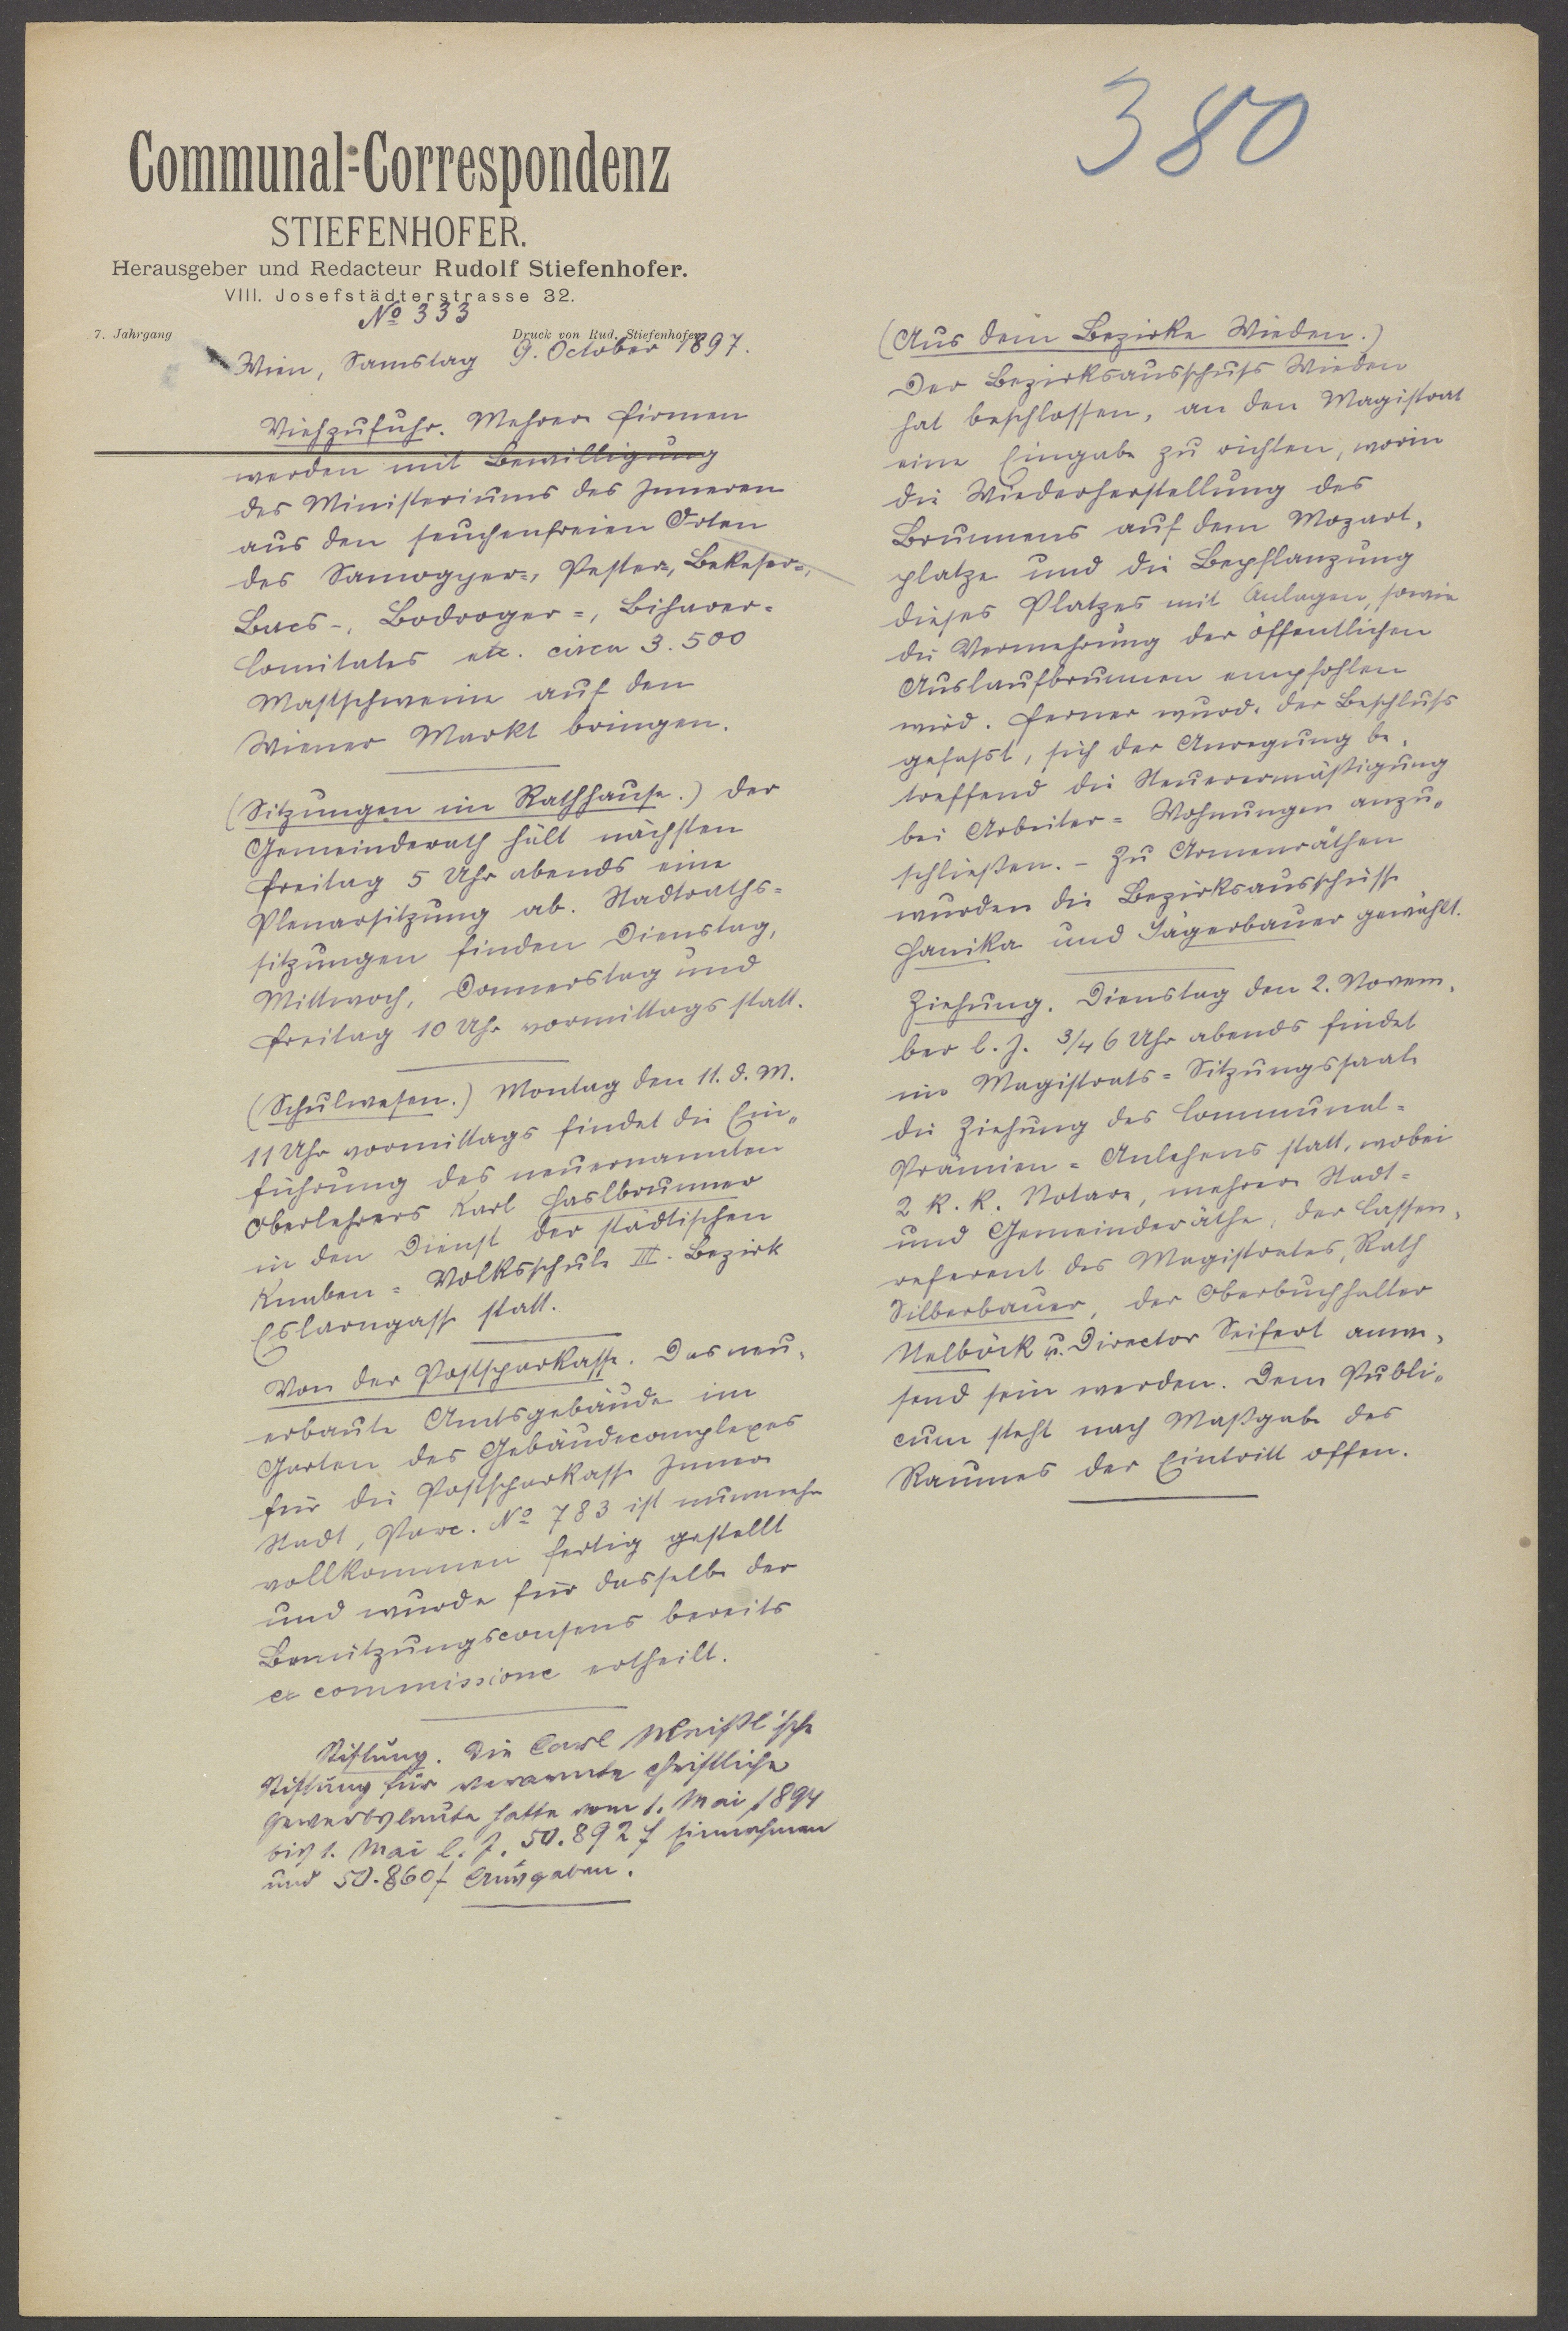 380
Communal-Correspondenz
STIEFENHOFER.
Herausgeber und Redacteur Rudolf Stiefenhofer.
VIII. Josefstädterstrasse 32.
No 333
7. Jahrgang
Druck von Rud. Stiefenhofer.
Wien, Samstag 9. October 1897.
Viehzufuhr. Mehrere Firmen
werden mit Bewilligung
des Ministeriums des Inneren
aus den seuchenfreien Orten
des Samogyer-, Pester-, Bekeser-,
Bacs-, Bodroger-, Biharer-
Comitates etc. circa 3.500
Mastschweine auf den
Wiener Markt bringen.
(Sitzungen im Rathhause.) Der
Gemeinderath hält nächsten
Freitag 5 Uhr abends eine
Plenarsitzung ab. Stadtraths-
sitzungen finden Dienstag,
Mittwoch, Donnerstag und
Freitag 10 Uhr vormittags statt.
(Schulwesen.) Montag den 11. d. M.
11 Uhr vormittags findet die Ein-
führung des neuernannten
Oberlehrers Karl Haslbrunner
in den Dienst der städtischen
Knaben-Volksschule III. Bezirk
Eslarngasse statt.
Von der Postsparkasse. Das neu-
erbaute Amtsgebäude im
Garten des Gebäudecomplexes
für die Postsparkasse Innere
Stadt, Parc. No 783 ist nunmehr
vollkommen fertig gestellt
und wurde für dasselbe der
Benützungsconsens bereits
ex commissione ertheilt.
Stiftung. Die Carl Meißl'sche
Stiftung für verarmte christliche
Gewerbsleute hatte vom 1. Mai 1894
bis 1. Mai l. J. 50.892 f Einnahmen
und 50.860 f Ausgaben.
(Aus dem Bezirke Wieden.)
Der Bezirksausschuss Wieden
hat beschlossen, an den Magistrat
eine Eingabe zu richten, worin
die Wiederherstellung des
Brunnens auf dem Mozart-
platze und die Bepflanzung
dieses Platzes mit Anlagen, sowie
die Vermehrung der öffentlichen
Auslaufbrunnen empfohlen
wird. Ferner wurde der Beschluss
gefasst, sich der Anregung be-
treffend die Steuerermäßigung
bei Arbeiter-Wohnungen anzu-
schließen. - Zu Armenräthen
wurden die Bezirksausschüsse
Hanika und Jägerbauer gewählt.
Ziehung. Dienstag den 2. Novem-
ber l. J. 3/4 6 Uhr abends findet
im Magistrats-Sitzungssaale
die Ziehung des Communal-
Prämien-Anlehens statt, wobei
2 k. k. Notare, mehrere Stadt-
und Gemeinderäthe, der Cassen-
referent des Magistrates, Rath
Silberbauer, der Oberbuchhalter
Nelböck u. Director Seifert anwe-
send sein werden. Dem Publi-
cum steht nach Maßgabe des
Raumes der Eintritt offen.